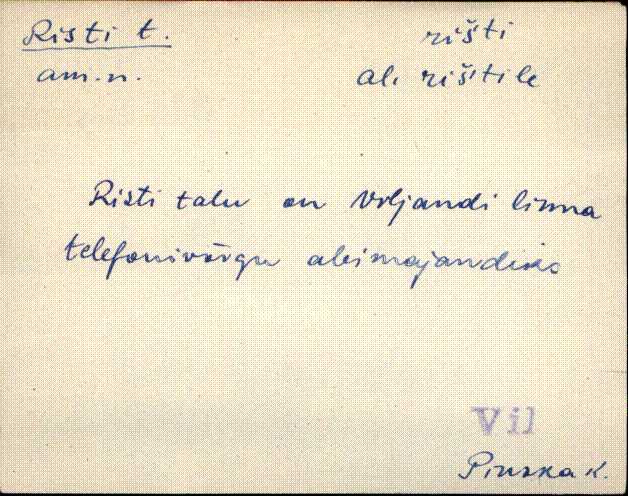 Risti t. rišti
am.n. al. rišitile
Risti talu on Viljandi linna
telefonivõrgu abimajandiks
Vil
Pinska k.